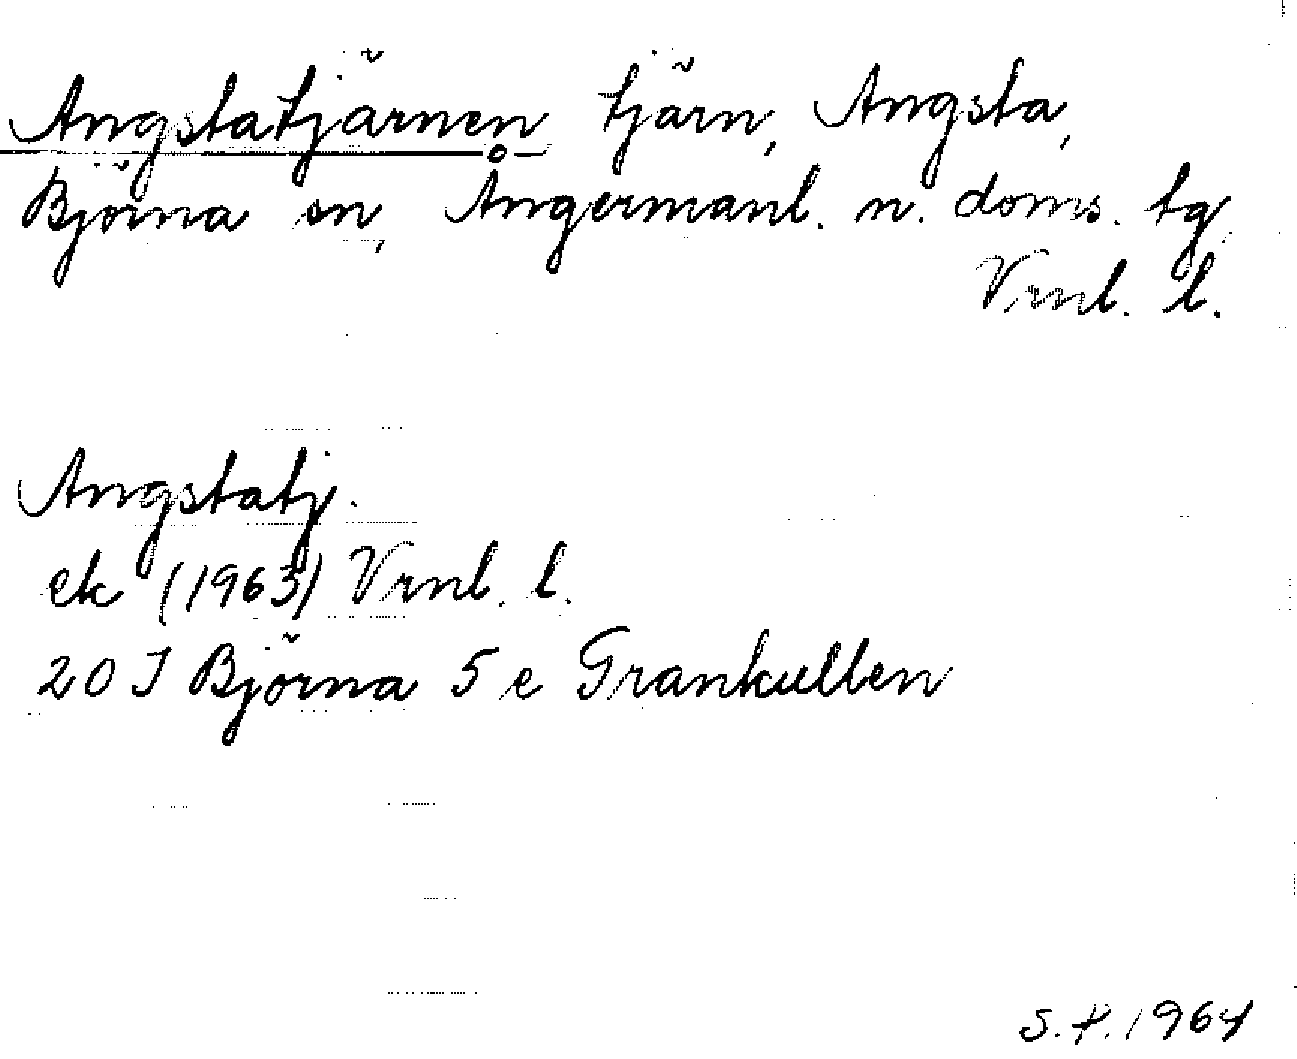 Angstatjärnen tjärn, Angsta,
Björna sn, Ångermanl. n. doms. tg
Vrnl. l.
Angstatj.
ek (1963) Vrnl. l.
20 J Björna 5 e Grankullen
S.P. 1964